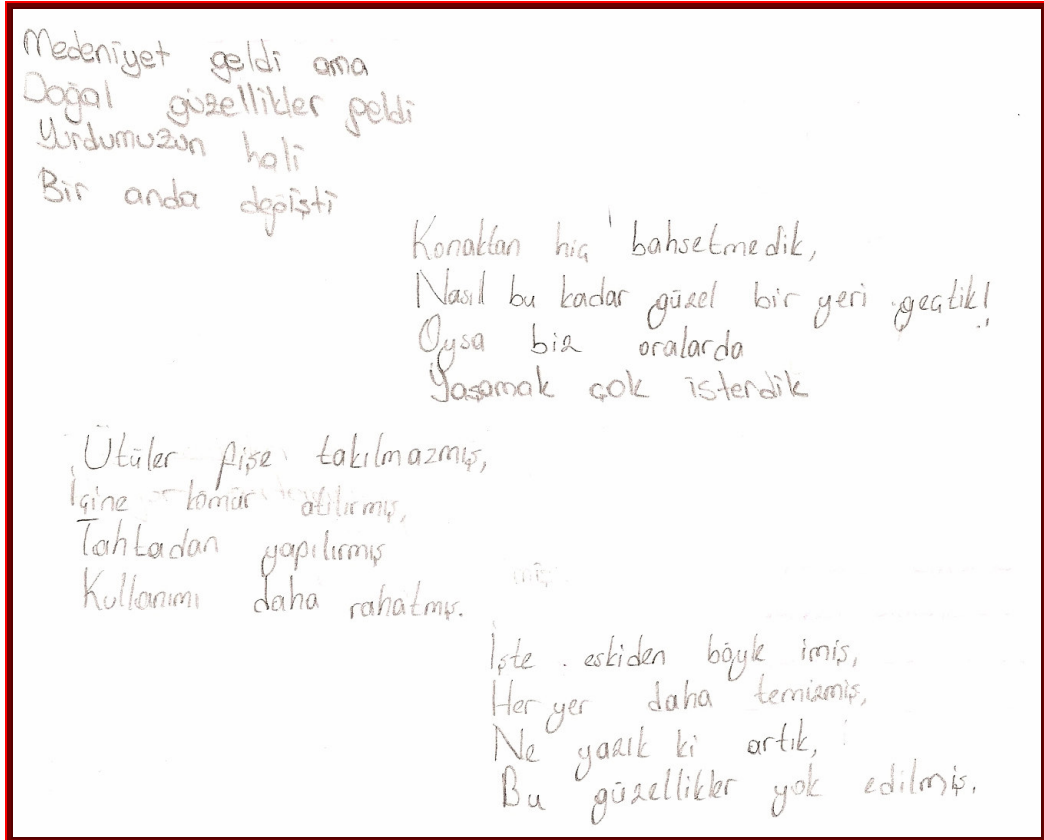 Medeniyet geldi ama
Doğal güzellikler geldi
Yurdumuzun hali
Bir anda değişti
Konaktan hiç bahsetmedik,
Nasıl bu kadar güzel bir yeri geçtik!
Oysa biz oralarda
Yaşamak çok isterdik
Ütüler fişe takılmazmış,
İçine kömür atılırmış,
Tahtadan yapılırmış
Kullanımı daha rahatmış.
İşte eskiden böyle imiş,
Her yer daha temizmiş,
Ne yazık ki artık,
Bu güzellikler yok edilmiş.